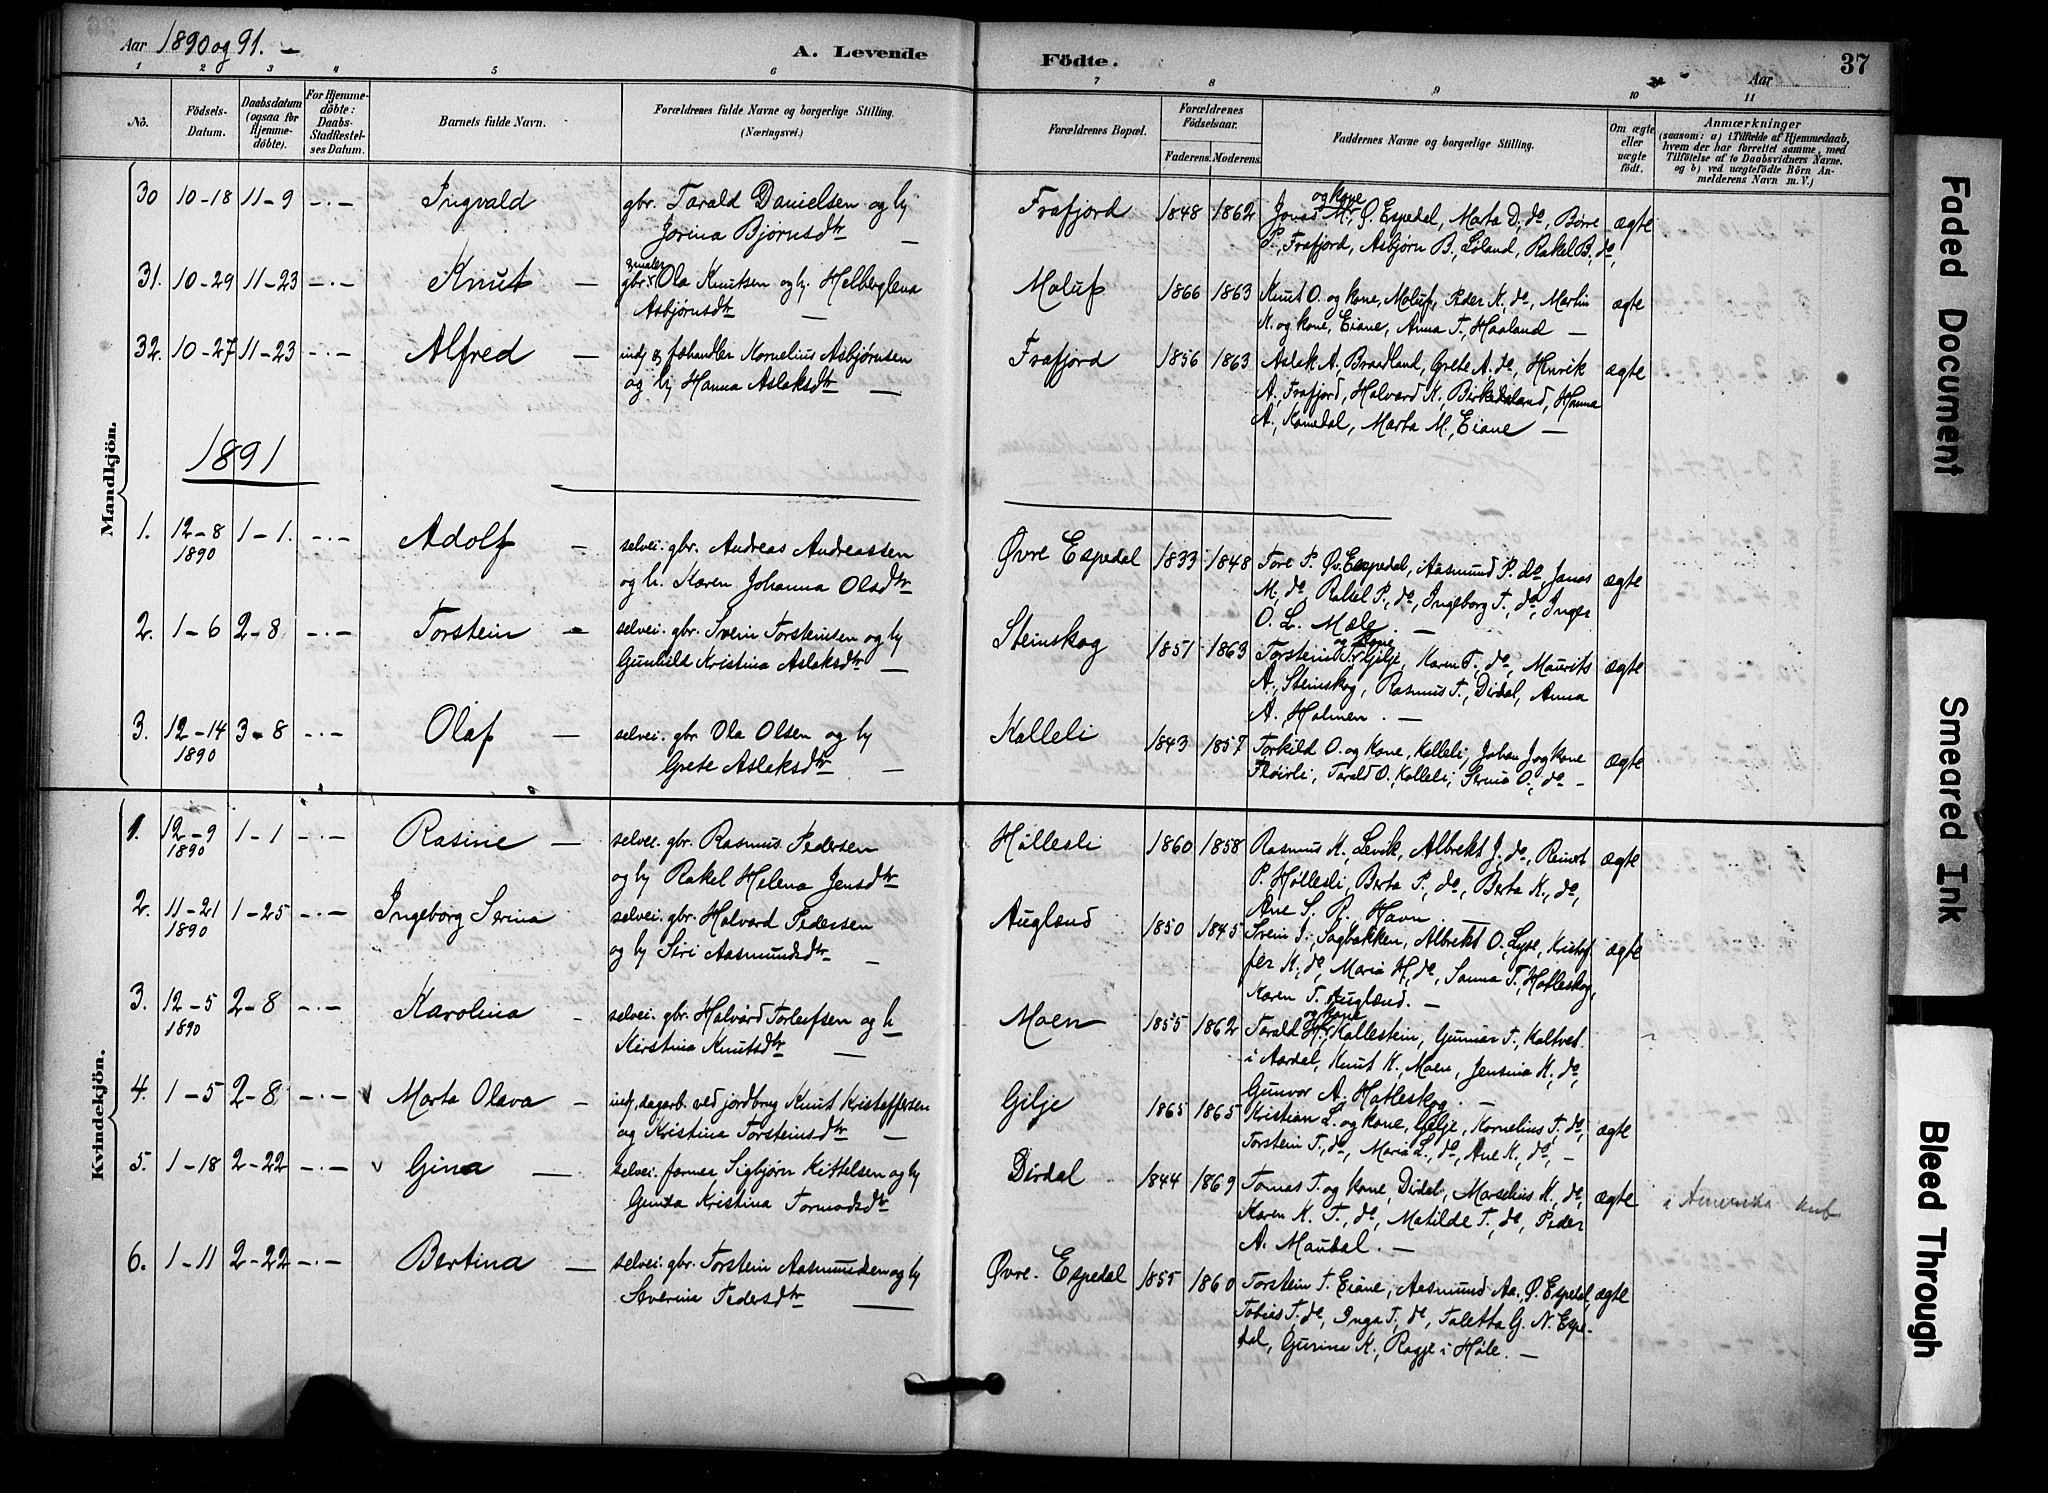 Aar 1890 og 91. –
A. Levende Födte.
Aar
37
1 2 3 4 5 6 7 8 9 10 11
No.
Födsels-Datum.
Daabsdatum (ogsaa for Hjemme-döbte).
For Hjemme-döbte: Daabs-Stadfestel-ses Datum.
Barnets fulde Navn.
Forældrenes fulde Navne og borgerlige Stilling. (Næringsvei.)
Forældrenes Bopæl.
Forældrenes Födselsaar.
Faderens. Moderens.
Faddernes Navne og borgerlige Stilling.
Om ægte eller uægte födt.
Anmærkninger
(saasom: a) i Tilfælde af Hjemmedaab, hvem der har forrettet samme, med Tilföielse af to Daabsvidners Navne. og b) ved uægtefödte Börn An-melderens Navn m. V.)
Mandkjön.
30 10-18 11-9 -.- Ingvald gbr. Tarald Danielsen og h Frafjord 1848 1862 Jonas M. og Kone Ø. Espedal, Marta D., do, Børre ægte
Jorina Bjørnsdtr – P., Frafjord, Asbjørn B., Løland, Rakel B., do,
31. 10-29 11-23 -.- Knut – gbr. Ola Knutsen og h. Helberglena Moluf 1866 1863 Knut O. og Kone, Moluf, Peder K., do, Martin ægte
Asbjørnsdtr – K. og Kone, Eiane, Anna T., Haaland –
32. 10-27 11-23 -.- Alfred – indj og fæhandler Kornelius Asbjørnsen Frafjord 1856 1863 Aslak A., Brædland, Grete A. do, Henrik ægte
og h Hanna Aslaksdtr – A., Frafjord, Halvard K., Birkedaland, Hanna
A., Kommedal, Marta M., Eiane –
1891
1. 12-8 1890 1-1. -.- Adolf – selvei. gbr. Andreas Andreassen Øvre Espedal 1833 1848 Tore P. Øv. Espedal, Aasmund P. do, Jonas ægte
og h. Karen Johanna Olsdtr M., do, Rakel P., do, Ingeborg T., do, Inger
O. L. Mæle. –
2. 1-6 2-8 -.- Torstein – selvei. gbr. Svein Torsteinsen og h Steinskog 1857 1863 Torstein T. og Kone Gilje, Karen T., do, Maurits ægte
Gunhild Kristina Aslaksdtr – A., Steinskog, Rasmus T., Dirdal, Anna
A. Holmen. –
3. 12-14 1890 3-8 -.- Olaf – selvei. gbr Ola Olsen og h Kalleli 1843 1857 Torkild O. og Kone, Kalleli, Johan J. og Kone ægte
Grete Aslaksdtr – Fløirli, Tarald O., Kalleli, Serina O., do –
Kvindekjön.
1. 12-9 1890 1-1 -.- Rasine – selvei. gbr. Rasmus Pedersen Høllesli 1860 1858 Rasmus K., Levik, Albrekt J., do, Reinert ægte
og h Rakel Helena Jensdtr P. Høllesli, Berta P., do, Berta K., do,
Ane S. R. Havn. –
2. 11-21 1890 1-25 -.- Ingeborg Serina selvei. gbr. Halvard Pedersen Auglænd 1850 1845 Svein J. Sagbakken, Albrekt O., Lyse, Kristof- ægte
og h Siri Aasmundsdtr – fer K., do, Maria H., do, Sanna T., Hatleskog,
Karen T. Auglænd. –
3. 12-5 1890 2-8 -.- Karolina – selvei. gbr. Halvard Torleifsen og h Moen 1855 1862 Tarald H. og Kone Kallestein, Gunnar T., Kaltvet
Kirstina Knutsdtr – i Aardal, Knut K. Moen, Jensina K., do,
Gunvor A. Hatleskog. –
4. 1-5 2-8 -.- v Marta Olava – inf. dagarb. ved jordbrug Knut Kristoffersen Gilje 1865 1865 Kristian L. og Kone, Gilje, Kornelius T., do, ægte
og Kristina Torsteinsdtr – Torstein T., do, Maria L., do, Ane K., do, –
5. 1-18 2-22 -.- v Gina – selvei. farver Sigbjørn Kittelsen og h Dirdal 1844 1869 Tomas T. og Kone, Dirdal, Marselius K., do, ægte i Amerika
Gunda Kristina Tormodsdtr Karen K. T., do, Matilde T., do, Peder
A. Maudal. –
6. 1-11 2-22 -.- Bertina – selvei. gbr. Torstein Aasmundsen og h Øvre. Espedal 1855 1860 Torstein T. Eiane, Aasmund Aa., Ø. Espedal, ægte
Severine Pedersdtr – Tobias T., do, Inga T., do, Taletta G. N. Espe-
dal, Gurina K., Ragje i Høle. –
Faded Document
Smeared Ink
Bleed Through